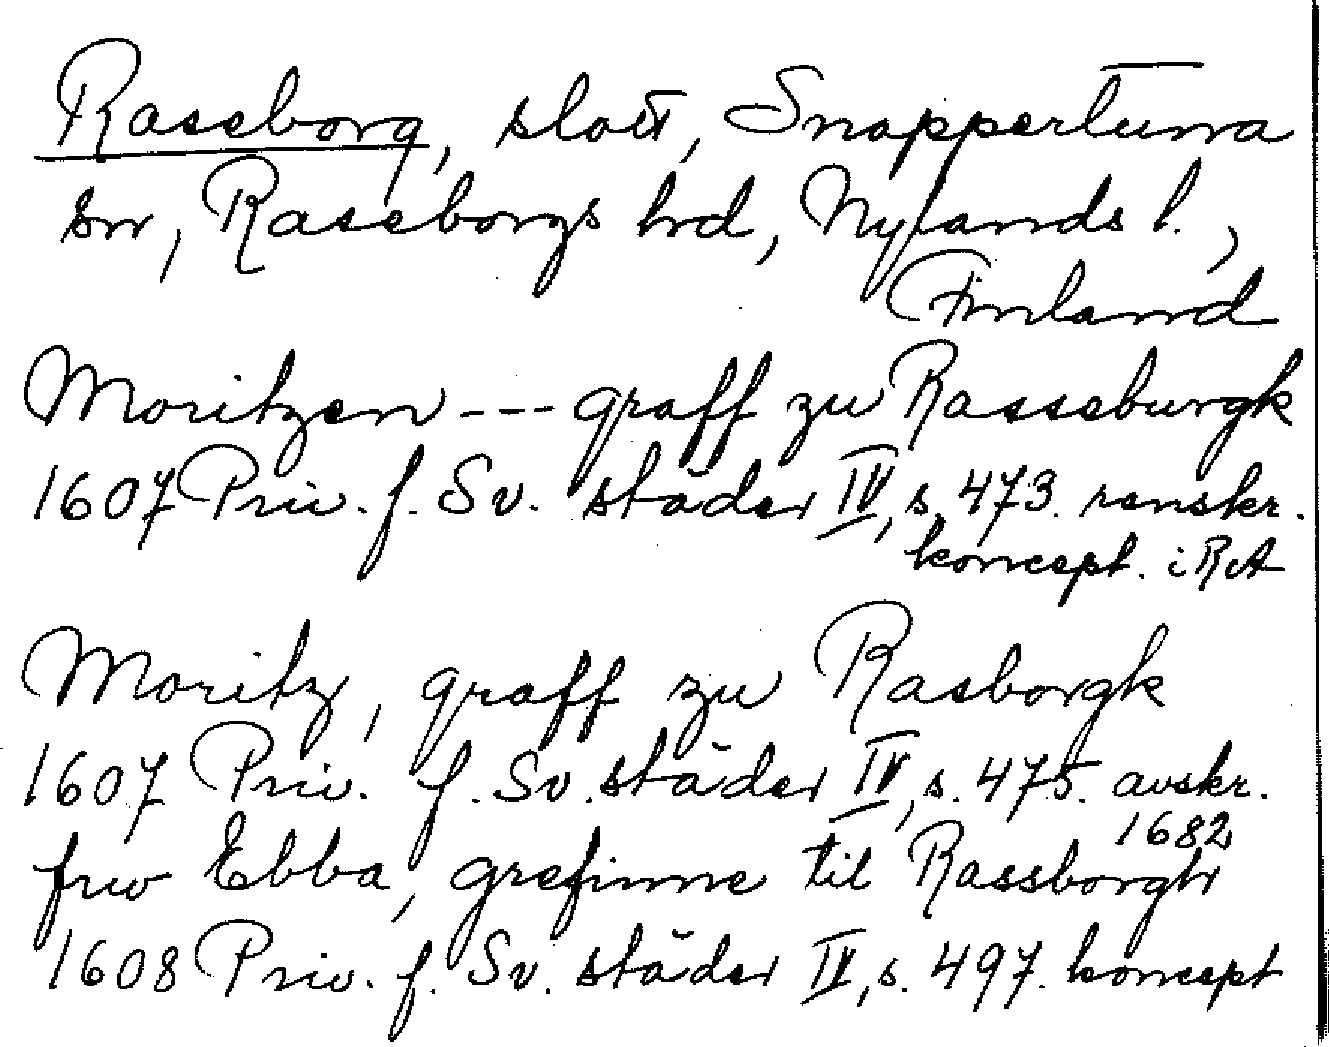 Raseborg, slott, Snappertuna
sn, Raseborgs hrd, Nylands l.,
Finland
Moritzen --- graff zu Rasseburgk
1607 Priv. f. Sv. städer IV, s. 473. renskr.
koncept. i RA
Moritz, graff zu Rasborgk
1607 Priv. f. Sv. städer IV, s. 475. avskr.
1682
frw Ebba, grefinne til Rassborgh
1608 Priv. f. Sv. städer IV, s. 497. koncept